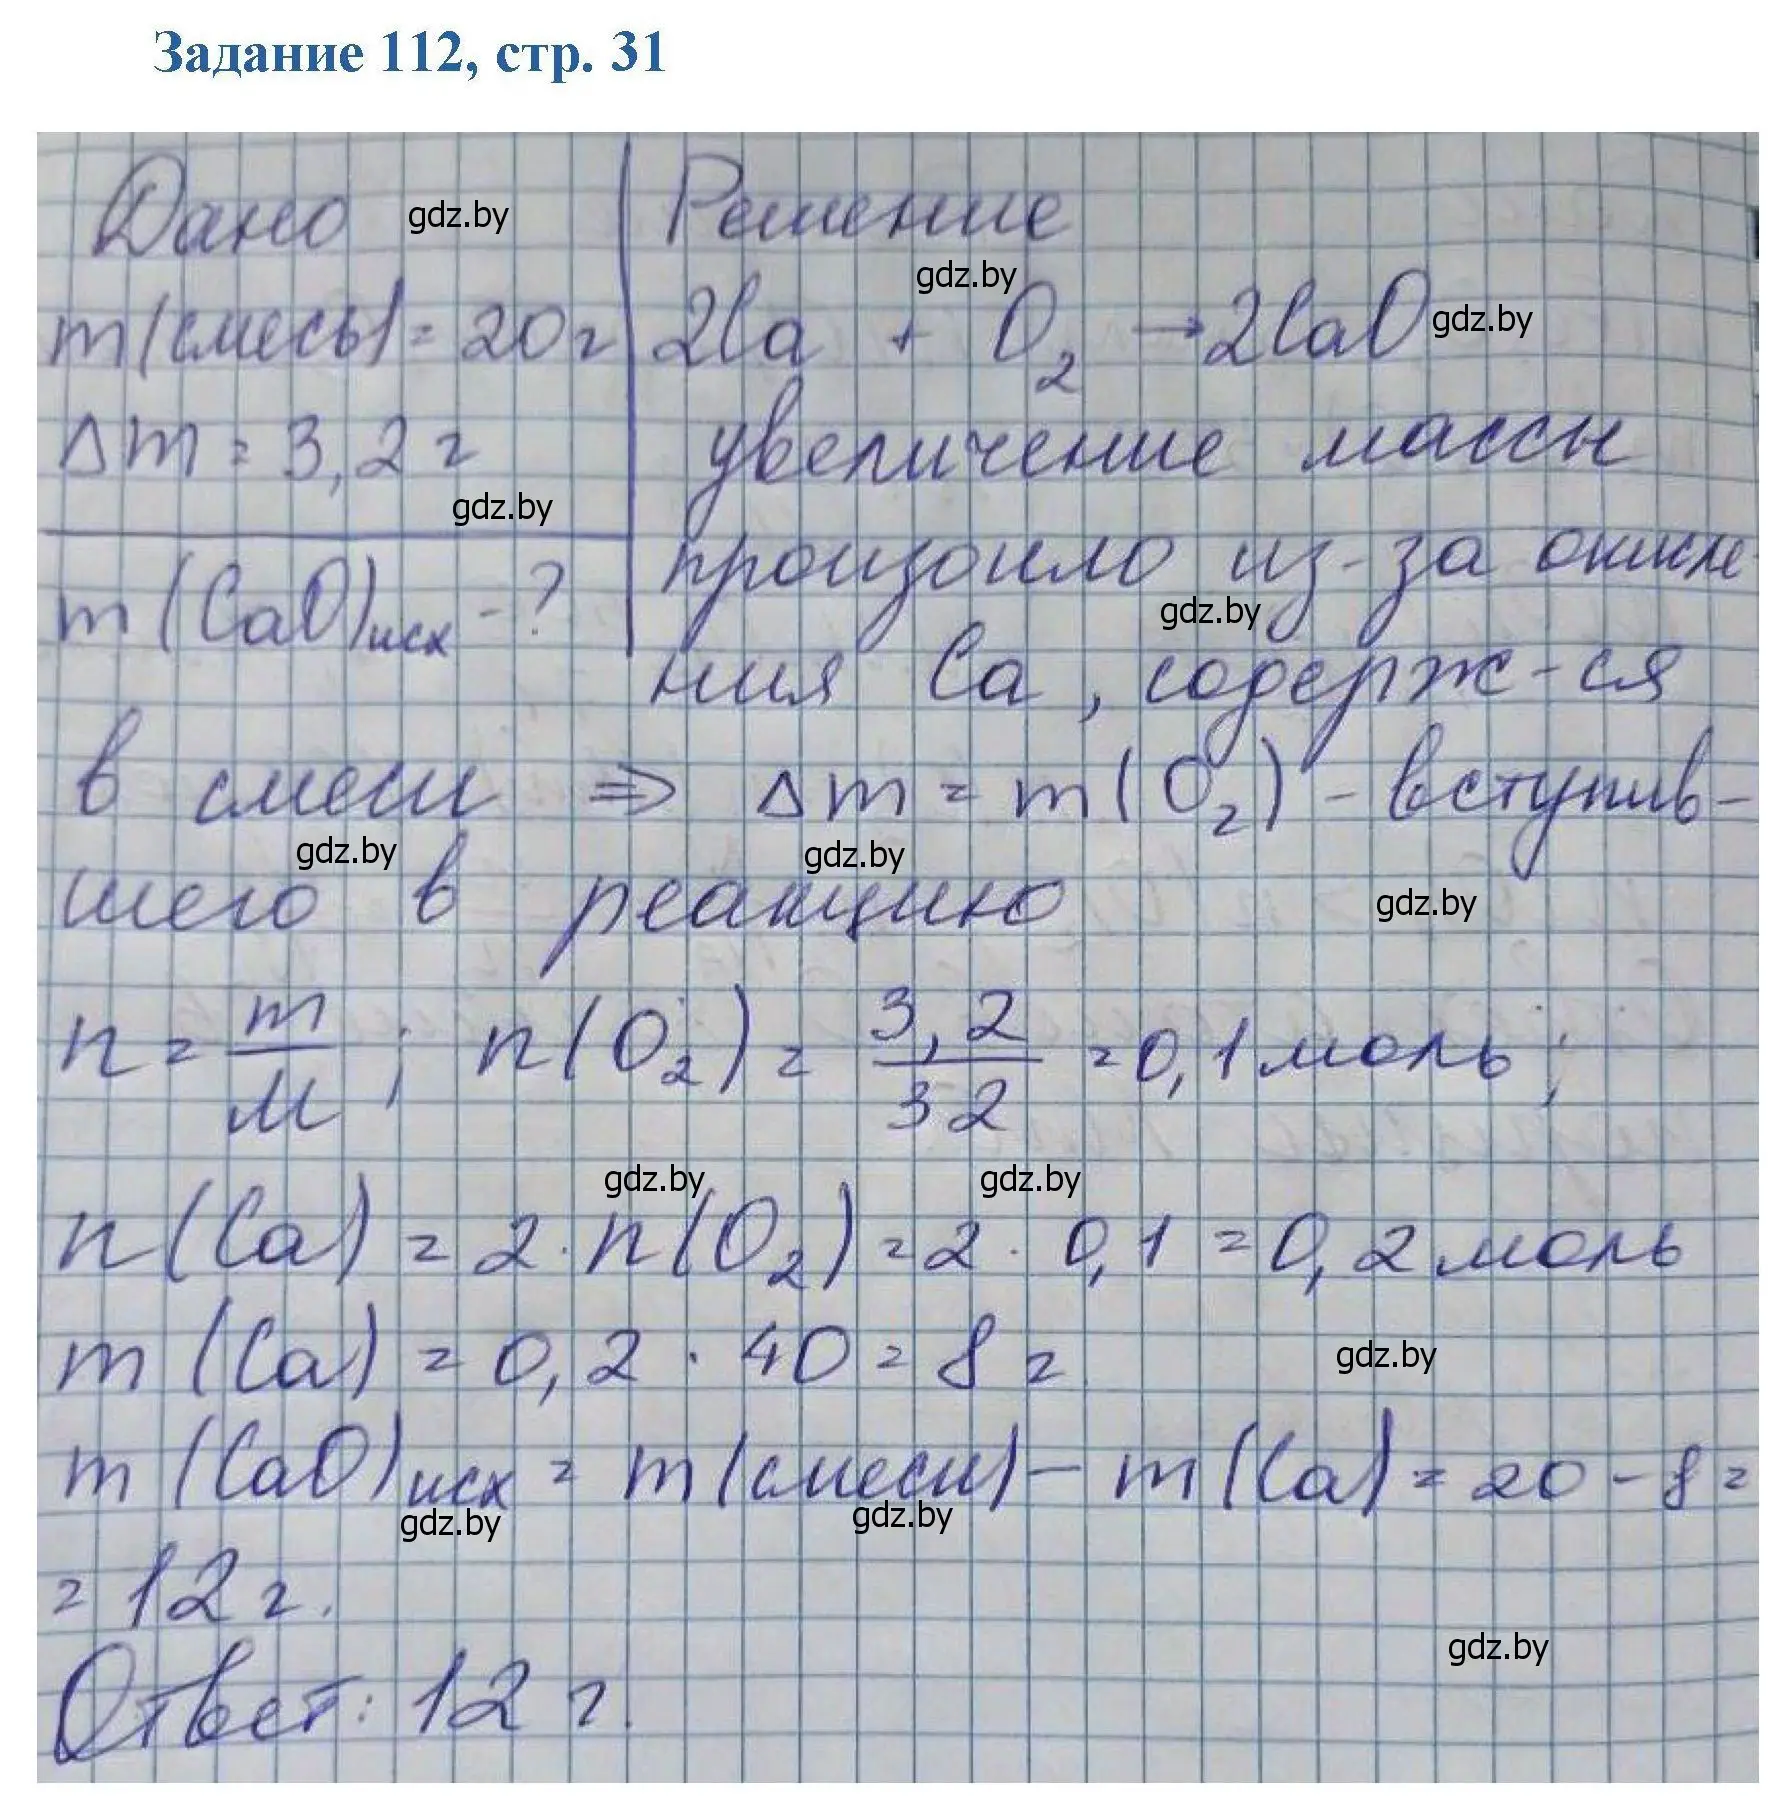 Задание 112, стр. 31
Дано gdz.by Решение
gdz.by
m(смесь) = 20г 2Ca + O₂ → 2CaO gdz.by
Δm = 3,2 г увеличение массы
gdz.by
произошло из-за окисле-
m(CaO)исх - ? gdz.by
ния Ca, содерж-ся
в смеси ⇒ Δm = m(O₂) - вступив-
gdz.by gdz.by
шего в реакцию gdz.by
n = m/M ; n(O₂) = 3,2/32 = 0,1 моль ;
gdz.by gdz.by
n(Ca) = 2 · n(O₂) = 2 · 0,1 = 0,2 моль
m(Ca) = 0,2 · 40 = 8 г gdz.by
m(CaO)исх = m(смеси) - m(Ca) = 20 - 8 =
gdz.by gdz.by
= 12 г.
gdz.by
Ответ: 12 г.